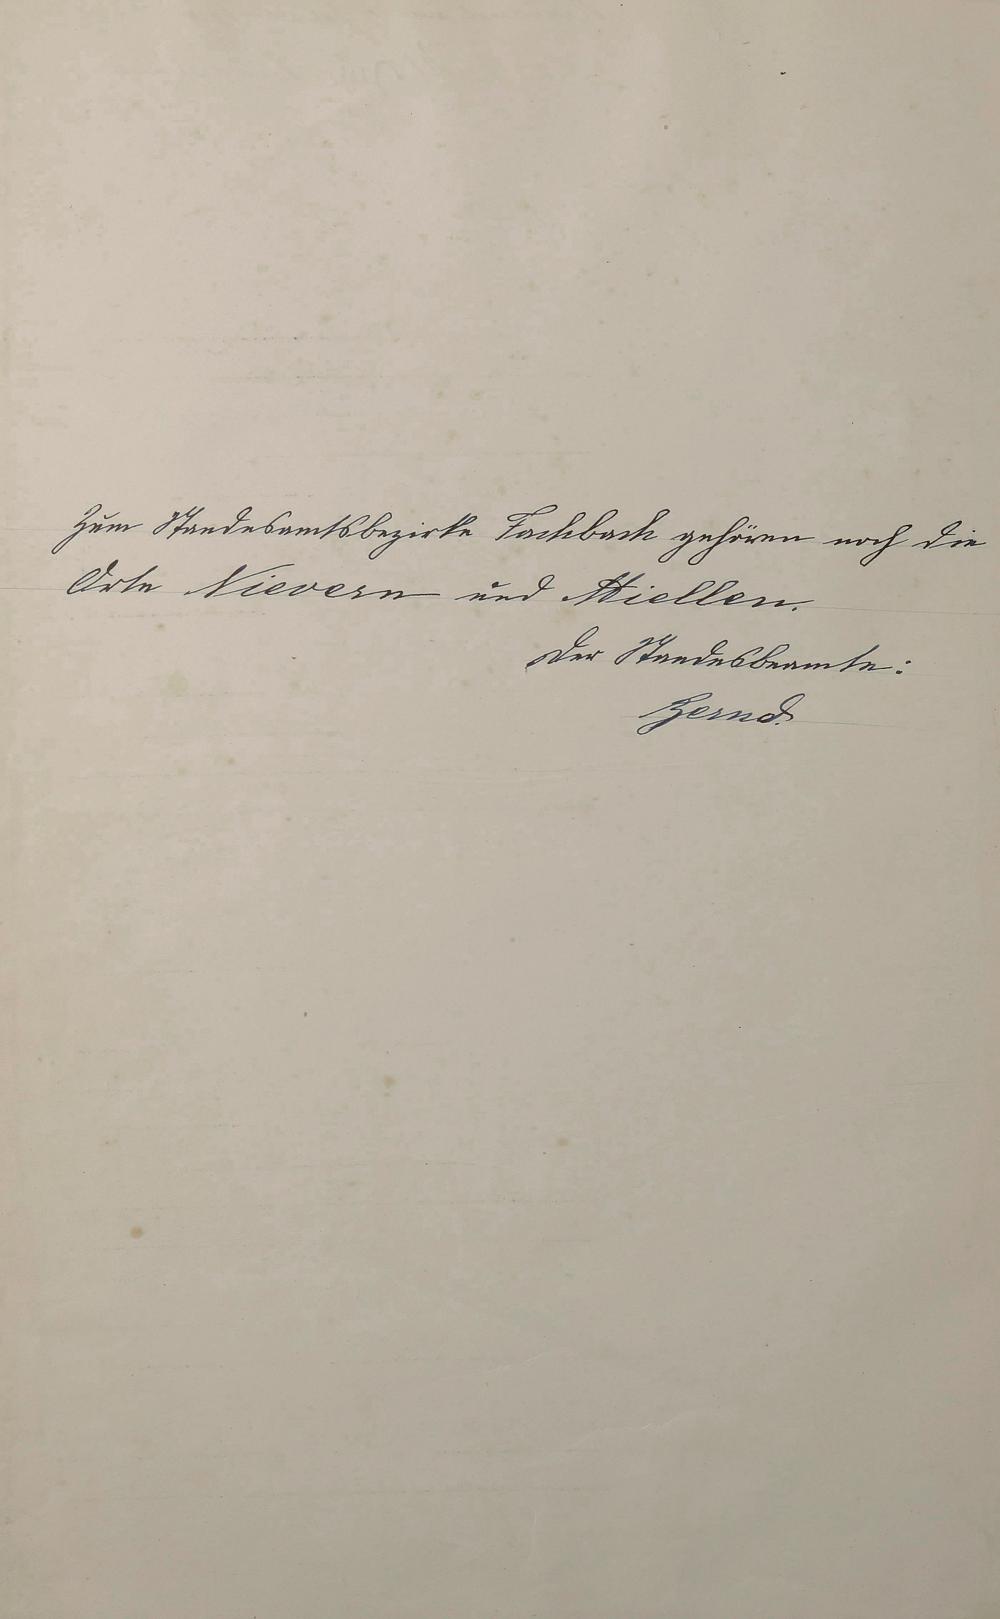 Zum Standesamtsbezirke Fachbach gehören noch die
Orte Nievern und Miellen.
Der Standesbeamte: